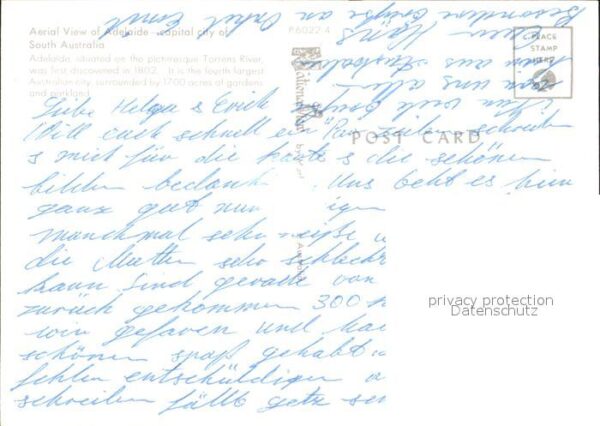 Aerial View of Adelaide - capital city of
South Australia
Adelaide, situated on the picturesque Torrens River,
was first discovered in 1802. It is the fourth largest
Australian city, surrounded by 1700 acres of gardens
and parkland.
P6022-4
PLACE
STAMP
HERE
POST CARD
Liebe Helga & Erich
Will euch schnell ein Paar Zeilen schreiben
s mich für die Karte s die schönen
bilder bedanken. Uns geht es hier
ganz gut nur
manchmal sehr heiße
die Mutter sehr schlecht
kann sind gerade von
zurück gekommen 300
wir gefaren und
schönen spaß gehabt
fehler entschüldigen
schreiben fällt getz
Nun viele
von uns allen
aus Australien
Hans
Besondere Grüße an Onkel Ernst
privacy protection
Datenschutz